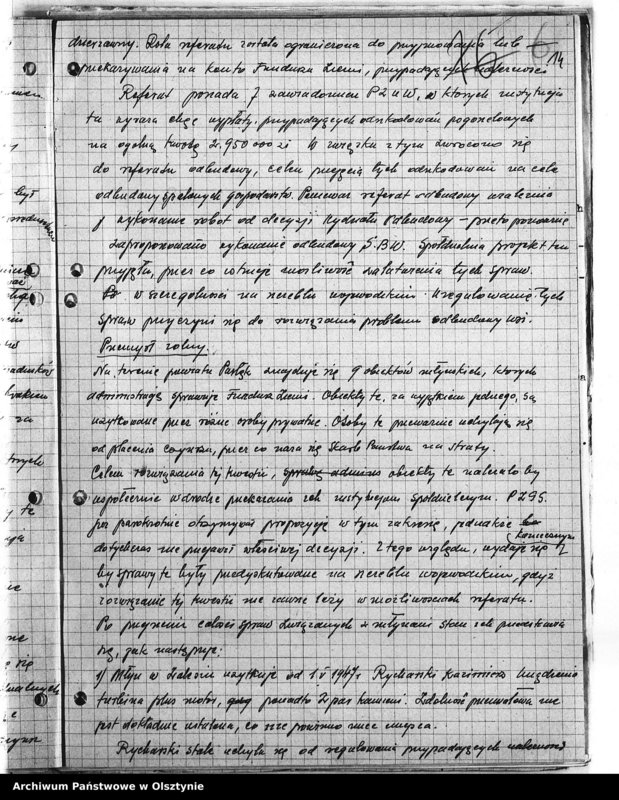 dzierżawny. Rola referatu została ograniczona do przyjmowania lub
przekazywania na konto Funduszu Ziemi, przypadających należności
Referat posiada 7 zawiadomień PZUW, w których instytucja
ta wyraża chęć wypłaty, przypadających odszkodowań pogorzelowych
na ogólną kwotę 2.950000 zł W związku z tym zwrócono się
do referatu odbudowy, celem przyjęcia tych odszkodowań na cele
odbudowy spalonych gospodarstw. Ponieważ referat odbudowy uzależnia
wykonanie robót od decyzji Wydziału Odbudowy – przeto
zaproponowano wykonanie odbudowy S.B.W. Spółdzielnia projekt ten
przyjęła, przez co istnieje możliwość załatwienia tych spraw.
w szczególności na szczeblu wojewódzkim. Uregulowanie tych
spraw przyczyni się do rozwiązania problemu odbudowy wsi.
Przemysł rolny.
Na terenie powiatu Pasłęk znajduje się 9 obiektów młyńskich, których
administrację sprawuje Fundusz Ziemi. Obiekty te, za wyjątkiem jednego, są
użytkowane przez różne osoby prywatne. Osoby te przeważnie uchylają się
od płacenia czynszu, przez co naraża się Skarb Państwa na straty.
Celem rozwiązania tej kwestii, obiekty te należało by
uspołecznić w drodze przekazania ich instytucjom Spółdzielczym. PZGS.
już parokrotnie otrzymywał propozycję w tym zakresie, jednakże
dotychczas nie powziął właściwej decyzji. Z tego względu, wydaje się koniecznym
by sprawy te były przedyskutowane na szczeblu wojewódzkim, gdyż
rozwiązanie tej kwestii nie zawsze leży w możliwościach referatu.
Po przejrzeniu całości spraw związanych z młynami stan ich przedstawia
się, jak następuje:
1/ Młyn w Zielonce użytkuje od 1.V 1947 r Rycharski Kazimierz Urządzenia
turbina plus motor, ponadto 2 par kamieni. Zdolność przemiałowa nie
jest dokładnie ustalona, co nie powinno mieć miejsca.
Rycharski stale uchyla się od regulowania przypadających należności
14
6
Archiwum Państwowe w Olsztynie